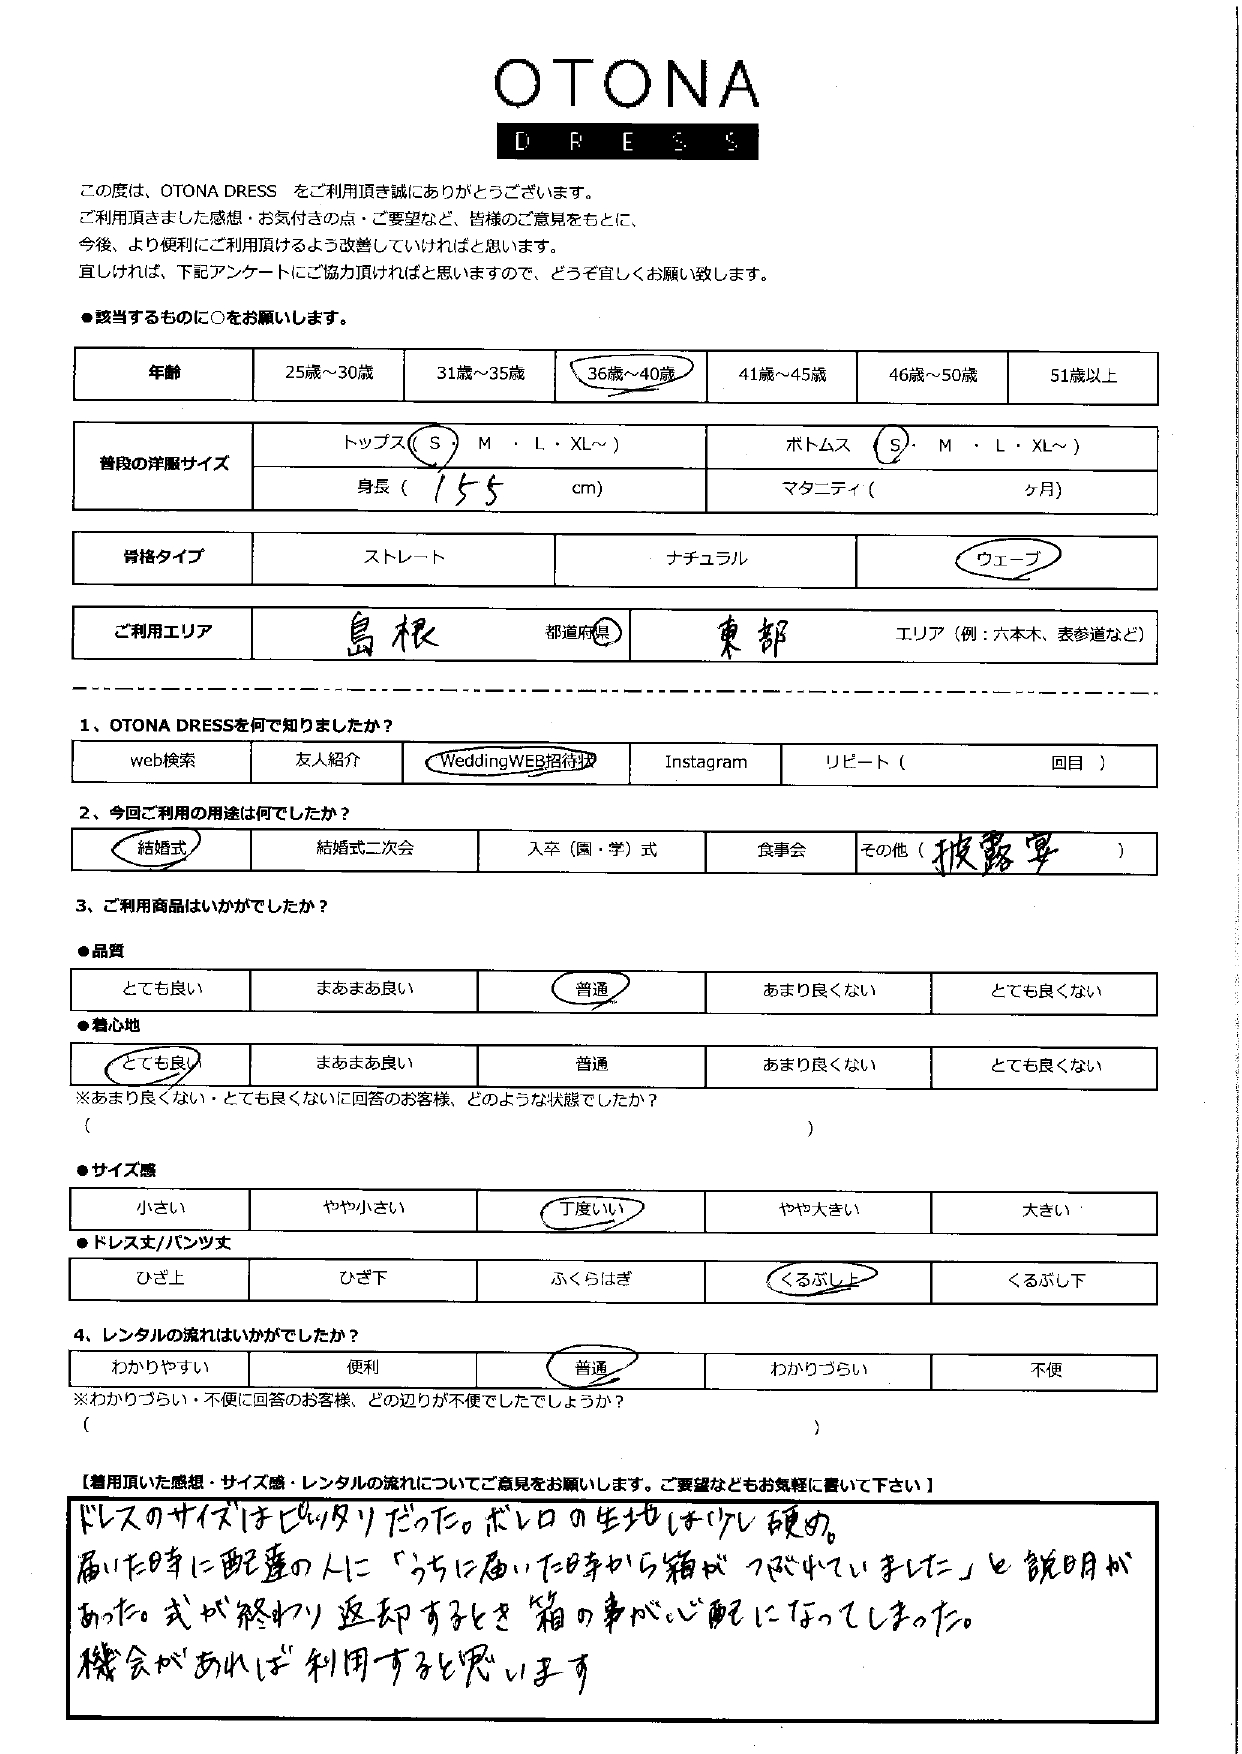 OTONA
DRESS
この度は、OTONA DRESS　をご利用頂き誠にありがとうございます。
ご利用頂きました感想・お気付きの点・ご要望など、皆様のご意見をもとに、
今後、より便利にご利用頂けるよう改善していければと思います。
宜しければ、下記アンケートにご協力頂ければと思いますので、どうぞ宜しくお願い致します。
●該当するものに○をお願いします。
年齢 25歳～30歳 31歳～35歳 36歳～40歳 41歳～45歳 46歳～50歳 51歳以上
普段の洋服サイズ トップス（ S ・ M ・ L ・ XL～ ） ボトムス （ S ・ M ・ L ・ XL～ ）
身長（ 155 cm） マタニティ（ ヶ月）
骨格タイプ ストレート ナチュラル ウェーブ
ご利用エリア 島根 都道府県 東部 エリア（例：六本木、表参道など）
1、OTONA DRESSを何で知りましたか？
web検索 友人紹介 WeddingWEB招待状 Instagram リピート（ 回目 ）
2、今回ご利用の用途は何でしたか？
結婚式 結婚式二次会 入卒（園・学）式 食事会 その他（ 披露宴 ）
3、ご利用商品はいかがでしたか？
●品質
とても良い まあまあ良い 普通 あまり良くない とても良くない
●着心地
とても良い まあまあ良い 普通 あまり良くない とても良くない
※あまり良くない・とても良くないに回答のお客様、どのような状態でしたか？
（ ）
●サイズ感
小さい やや小さい 丁度いい やや大きい 大きい
●ドレス丈/パンツ丈
ひざ上 ひざ下 ふくらはぎ くるぶし上 くるぶし下
4、レンタルの流れはいかがでしたか？
わかりやすい 便利 普通 わかりづらい 不便
※わかりづらい・不便に回答のお客様、どの辺りが不便でしたでしょうか？
（ ）
【着用頂いた感想・サイズ感・レンタルの流れについてご意見をお願いします。ご要望などもお気軽に書いて下さい】
ドレスのサイズはピッタリだった。ボレロの生地は少し硬め。
届いた時に配達の人に「うちに届いた時から箱が つぶれていました」と説明が
あった。式が終わり返却するとき箱の事が心配になってしまった。
機会があれば利用すると思います